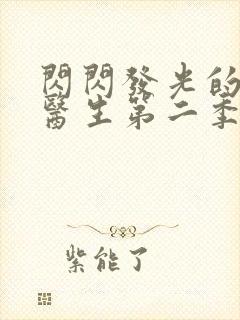 閃閃發光的
醫生第二季
紫能了